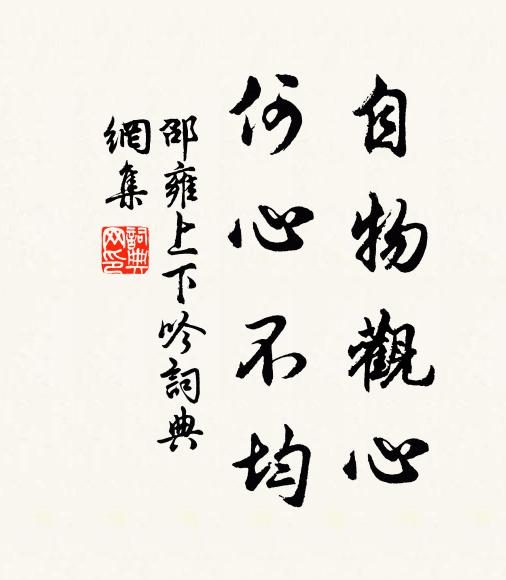 自物觀心
何心不均
邵雍上下吟詞典
網集
詞典網印